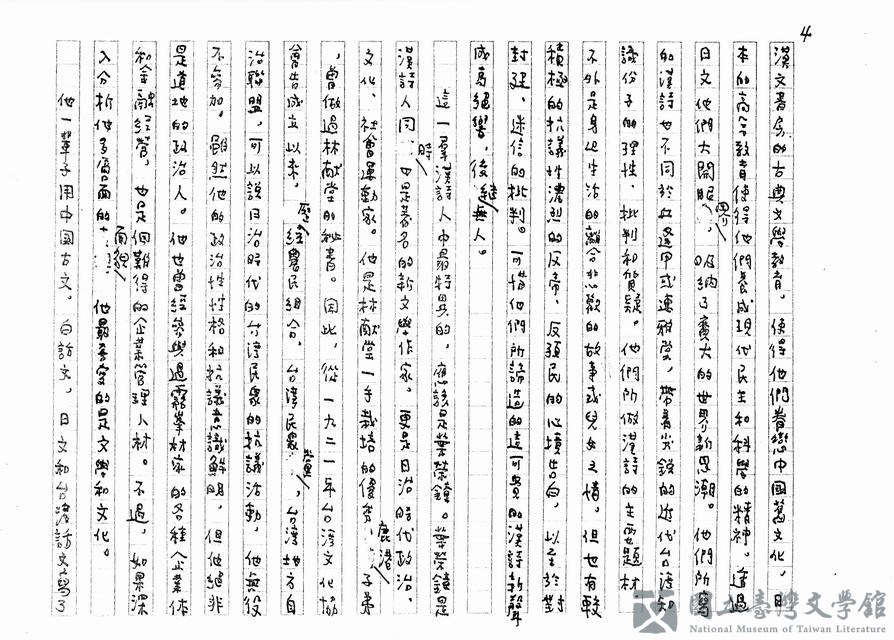 4
漢文書房的古典文學教育，使得他們眷戀中國舊文化，日
本的高等教育使得他們養成現代民主和科學的精神。透過
日文他們大開眼界，吸納了廣大的世界新思潮。他們所寫
的漢詩也不同於丘逢甲或連雅堂，帶着尖銳的近代台灣知
識份子的理性、批判和質疑。他們所做漢詩的主要題材
不外是身邊生活的離合悲歡的故事或兒女之情，但也有較
積極的抗議性濃烈的反帝、反殖民的心境告白，以至於對
封建、迷信的批判。可惜他們所諦造的這可貴的漢詩新聲
成為絕響，後繼無人。
這一羣漢詩人中最特異的，應該是葉榮鐘。葉榮鐘是
漢詩人同時也是著名的新文學作家。更是日治時代政治、
文化、社會運動家。他是林獻堂一手栽培的優秀鹿港子弟
，曾做過林獻堂的秘書。因此，從一九二一年台灣文化協
會告成立以來，歷經農民組合、台灣民眾黨，台灣地方自
治聯盟，可以說日治時代的台灣民眾的抗議活動，他無役
不參加。雖然他的政治性性格和抗議意識鮮明，但他絕非
是道地的政治人。他也曾經參與過霧峯林家的各種企業体
和金融經營，也是個難得的企業管理人材。不過，如果深
入分析他多層面的面貌，他最喜愛的是文學和文化。
他一輩子用中國古文，白話文，日文和台灣話文寫了
國立臺灣文學館
National Museum of Taiwan Literature